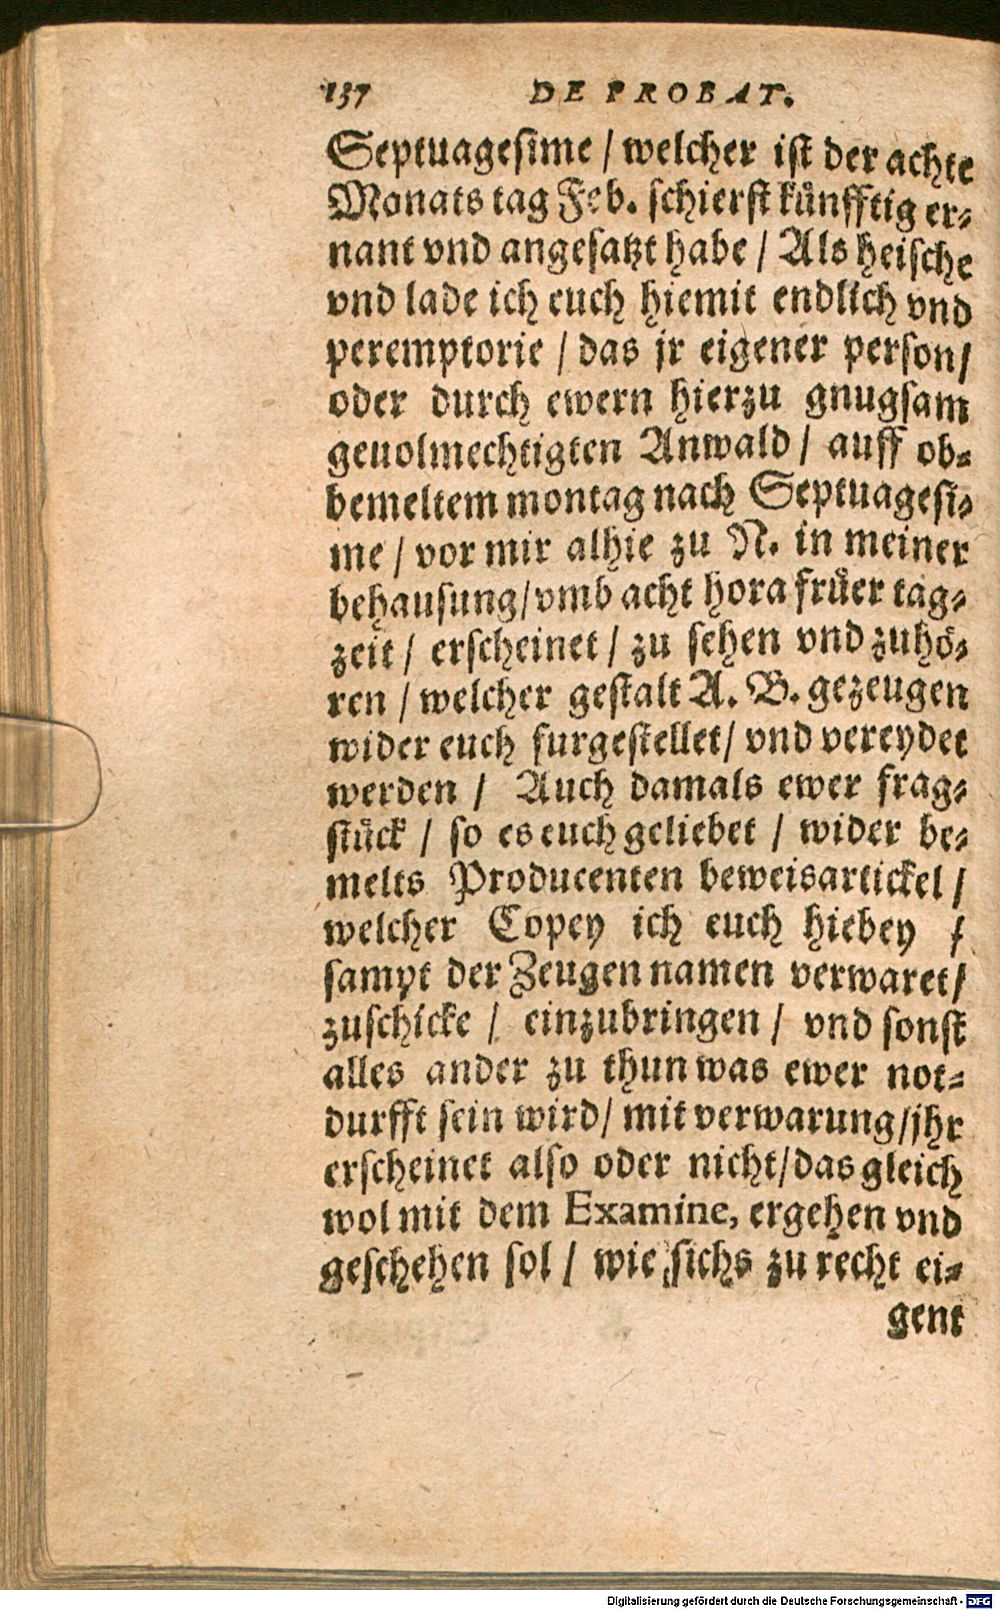 137 DE PROBAT.
Septuagesime / welcher ist der achte
Monats tag Feb. schierst kůnfftig er-
nant vnd angesatzt habe / Als heische
vnd lade ich euch hiemit endlich vnd
peremptorie / das jr eigener person/
oder durch ewern hierzu gnugsam
geuolmechtigten Anwald / auff ob-
bemeltem montag nach Septuagesi-
me / vor mir alhie zu N. in meiner
behausung/vmb acht hora frůer tag-
zeit / erscheinet / zu sehen vnd zuhö-
ren / welcher gestalt A. B. gezeugen
wider euch furgestellet/ vnd vereydet
werden / Auch damals ewer frag-
stůck / so es euch geliebet / wider be-
melts Producenten beweisartickel /
welcher Copey ich euch hiebey /
sampt der Zeugen namen verwaret/
zuschicke / einzubringen / vnd sonst
alles ander zu thun was ewer not-
durfft sein wird/ mit verwarung/jhr
erscheinet also oder nicht/das gleich
wol mit dem Examine, ergehen vnd
geschehen sol / wie sichs zu recht ei-
gent
Digitalisierung gefördert durch die Deutsche Forschungsgemeinschaft - DFG